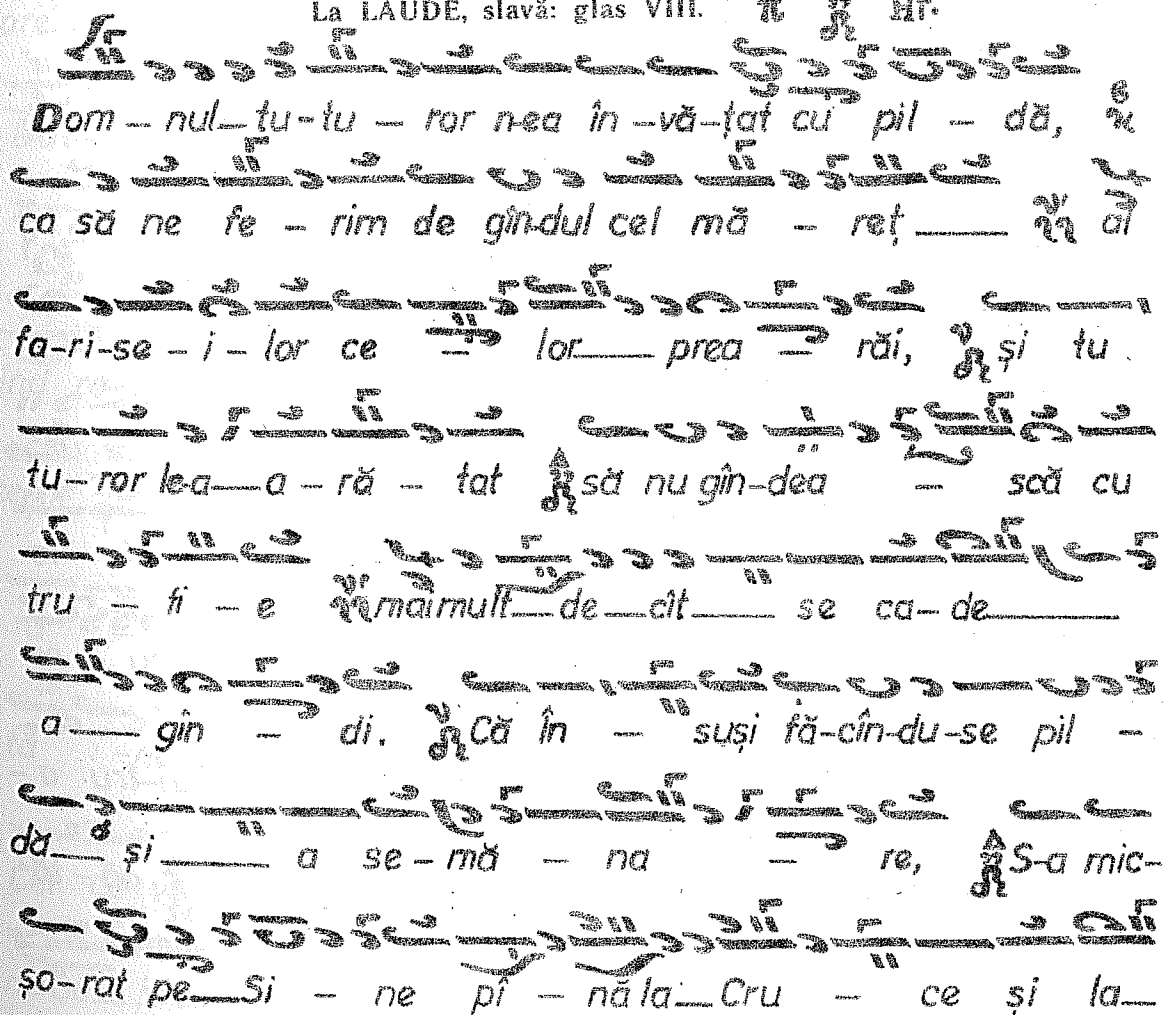 La LAUDE, slavă: glas VIII.
Dom – nul tu-tu – ror n-ea în –vă–țat cu pil – dă,
ca să ne fe – rim de gîn-dul cel mă – reț al
fa-ri-se – i – lor ce – lor prea – răi, și tu
tu– ror le-a a – ră – tat să nu gîn–dea – scă cu
tru – fi – e mai mult de cît se ca– de
a gîn – di. Că în – suși fă-cîn-du-se pil –
dă și a se – mă – na – re, S-a mic–
șo-rat pe Si – ne pî – nă la Cru – ce și la